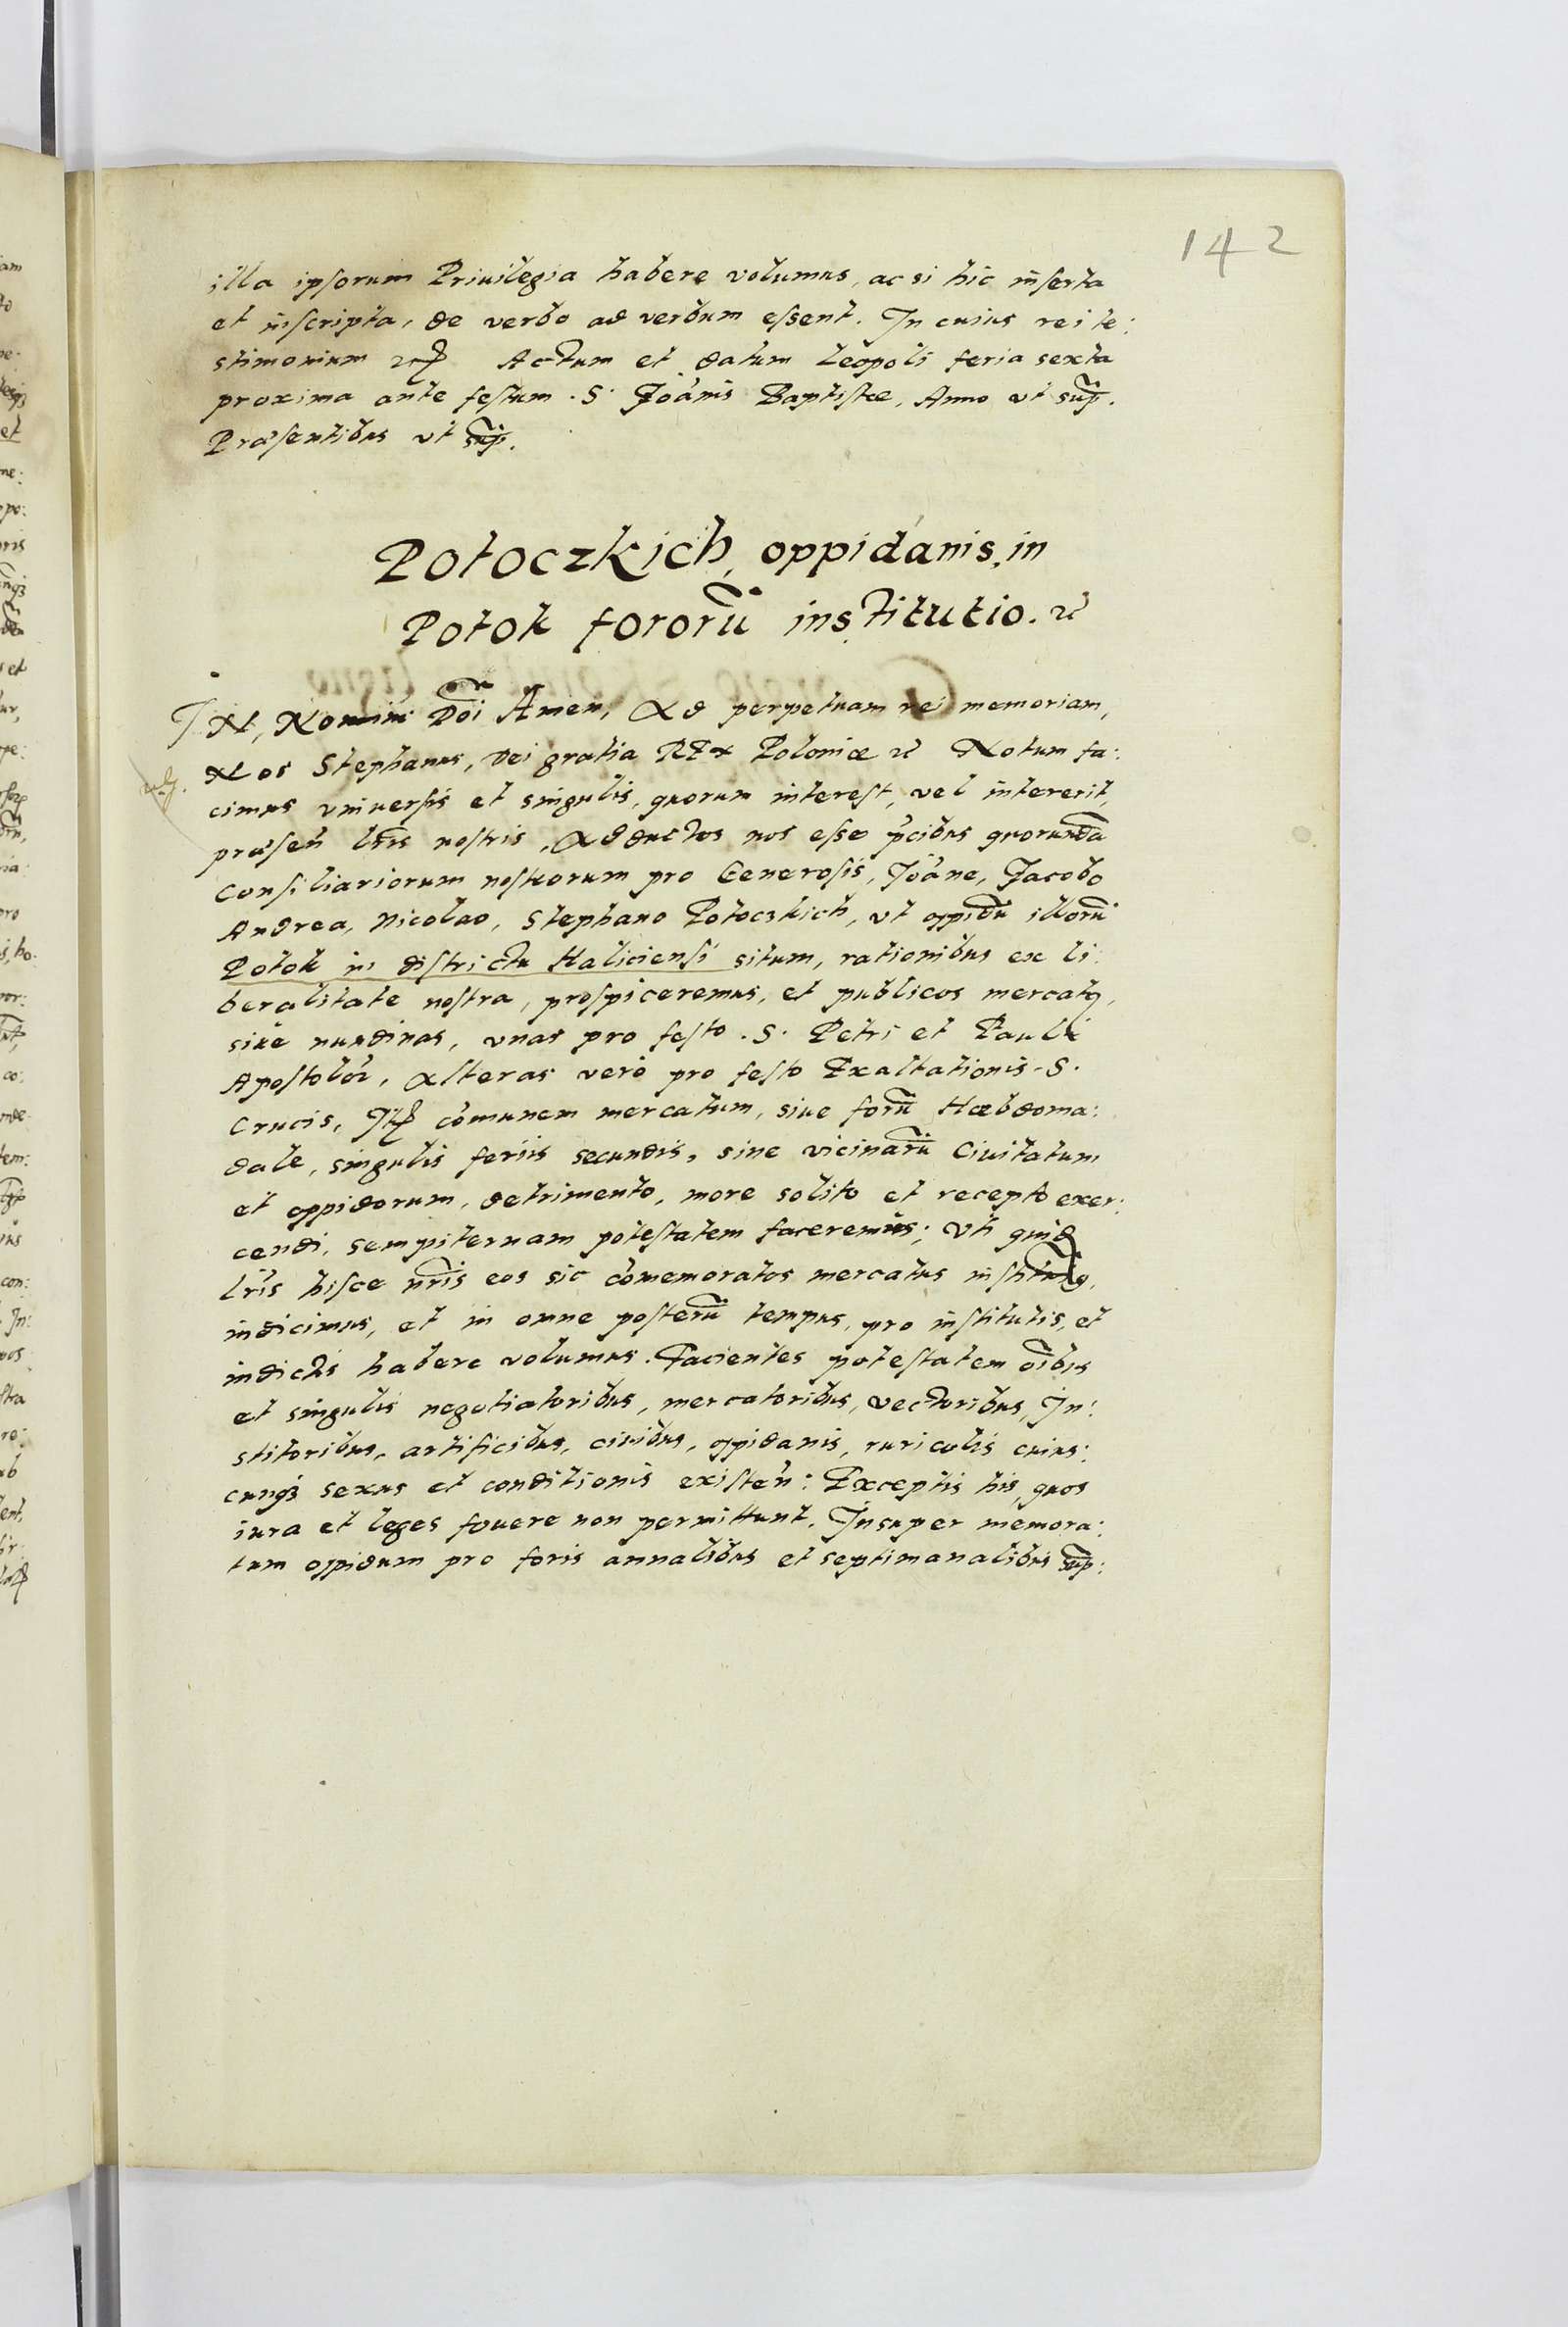 142
illa ipsorum Priuilegia habere volumus, ac si hic inserta
et inscripta, de verbo ad verbum essent. In cuius rei te:
stimonium Actum et datum Leopoli feria sexta
proxima ante festum .S. Joānis Baptistæ, Anno vt sup̄.
Præsentibus vt sup̄.
Potoczkich, oppidanis in
Potok fororū institutio. etc
IN, Nomine Dōi Amen, Ad perpetuam rei memoriam,
Nos Stephanus, Dei gratia REX Poloniæ etc Notum fa:
cimus vniuersis et singulis, quorum interest, vel intererit,
præseñ lr̄is nostris, Adductos nos esse p̄cibus quorundā
Consiliariorum nostrorum pro Generosis, Joāne, Jacobo
Andrea, Nicolao, Stephano Potoczkich, vt oppidū illorū
Potok in districtu Haliciensi situm, rationibus ex li:
beralitate nostra, prospiceremus, et publicos mercatꝰ,
siue nundinas, vnas pro festo .S. Petri et Pauli
Apostolor̄, Alteras verò pro festo Exaltationis .S.
Crucis, Itē cōmunem mercatum, siue forū Hæbdoma:
dale, singulis feriis secundis, sine vicinarū Ciuitatum
et oppidorum, detrimento, more solito et recepto exer:
cendi, sempiternam potestatem faceremus; Vti quidē
lr̄is hisce nr̄is eos sic cōmemoratos mercatus
indicimus, et in omne posterū tempus, pro institutis, et
indictis habere volumus. Facientes potestatem ōibus
et singulis negotiatoribus, mercatoribus, vectoribus, In:
stitoribus, artificibus, ciuibus, oppidanis, ruricolis cuius:
cunqꝫ sexus et conditionis existeñ: Exceptis his, quos
iura et leges fouere non permittunt. Insuper memora:
tum oppidum pro foris annalibus et septimanalibus sup̄: